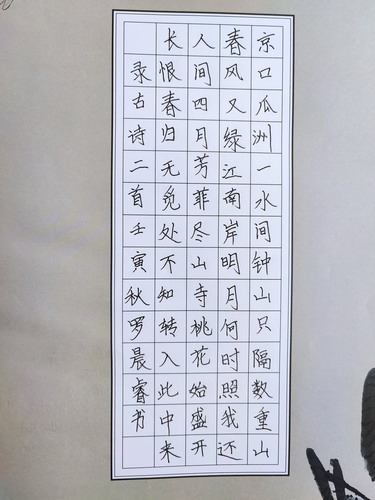 京口瓜洲一水间钟山只隔数重山
春风又绿江南岸明月何时照我还
人间四月芳菲尽山寺桃花始盛开
长恨春归无觅处不知转入此中来
录古诗二首壬寅秋罗晨睿书